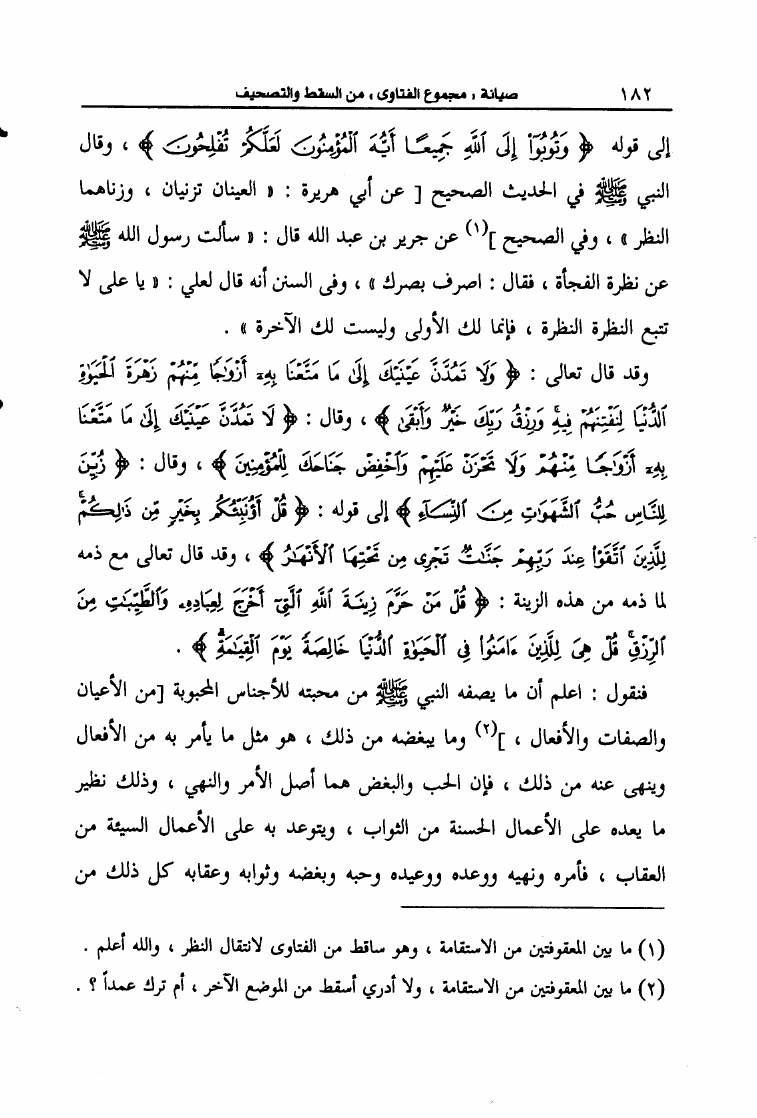 ١٨٢ صيانة « مجموع الفتاوى » من السقط والتصحيف
إلى قوله ﴿ وَتُوبُوٓا۟ إِلَى ٱللَّهِ جَمِيعًا أَيُّهَ ٱلْمُؤْمِنُونَ لَعَلَّكُمْ تُفْلِحُونَ ﴾ ، وقال
النبي ﷺ في الحديث الصحيح [ عن أبي هريرة : « العينان تزنيان ، وزناهما
النظر » ، وفي الصحيح ](١) عن جرير بن عبد الله قال : « سألت رسول الله ﷺ
عن نظرة الفجأة ، فقال : اصرف بصرك » ، وفى السنن أنه قال لعلي : « يا على لا
تتبع النظرة النظرة ، فإنما لك الأولى وليست لك الآخرة » .
وقد قال تعالى : ﴿ وَلَا تَمُدَّنَّ عَيْنَيْكَ إِلَىٰ مَا مَتَّعْنَا بِهِۦٓ أَزْوَٰجًا مِّنْهُمْ زَهْرَةَ ٱلْحَيَوٰةِ
ٱلدُّنْيَا لِنَفْتِنَهُمْ فِيهِ ۚ وَرِزْقُ رَبِّكَ خَيْرٌ وَأَبْقَىٰ ﴾ ، وقال : ﴿ لَا تَمُدَّنَّ عَيْنَيْكَ إِلَىٰ مَا مَتَّعْنَا
بِهِۦٓ أَزْوَٰجًا مِّنْهُمْ وَلَا تَحْزَنْ عَلَيْهِمْ وَٱخْفِضْ جَنَاحَكَ لِلْمُؤْمِنِينَ ﴾ ، وقال : ﴿ زُيِّنَ
لِلنَّاسِ حُبُّ ٱلشَّهَوَٰتِ مِنَ ٱلنِّسَآءِ ﴾ إلى قوله : ﴿ قُلْ أَؤُنَبِّئُكُم بِخَيْرٍ مِّن ذَٰلِكُمْ ۚ
لِلَّذِينَ ٱتَّقَوْا۟ عِندَ رَبِّهِمْ جَنَّـٰتٌ تَجْرِى مِن تَحْتِهَا ٱلْأَنْهَـٰرُ ﴾ ، وقد قال تعالى مع ذمه
لما ذمه من هذه الزينة : ﴿ قُلْ مَنْ حَرَّمَ زِينَةَ ٱللَّهِ ٱلَّتِىٓ أَخْرَجَ لِعِبَادِهِۦ وَٱلطَّيِّبَـٰتِ مِنَ
ٱلرِّزْقِ ۚ قُلْ هِىَ لِلَّذِينَ ءَامَنُوا۟ فِى ٱلْحَيَوٰةِ ٱلدُّنْيَا خَالِصَةً يَوْمَ ٱلْقِيَـٰمَةِ ۗ ﴾ .
فنقول : اعلم أن ما يصفه النبي ﷺ من محبته للأجناس المحبوبة [من الأعيان
والصفات والأفعال ، ](٢) وما يبغضه من ذلك ، هو مثل ما يأمر به من الأفعال
وينهى عنه من ذلك ، فإن الحب والبغض هما أصل الأمر والنهي ، وذلك نظير
ما يعده على الأعمال الحسنة من الثواب ، ويتوعد به على الأعمال السيئة من
العقاب ، فأمره ونهيه ووعده ووعيده وحبه وبغضه وثوابه وعقابه كل ذلك من
(١) ما بين المعقوفتين من الاستقامة ، وهو ساقط من الفتاوى لانتقال النظر ، والله أعلم .
(٢) ما بين المعقوفتين من الاستقامة ، ولا أدري أسقط من الموضع الآخر ، أم ترك عمداً ؟ .